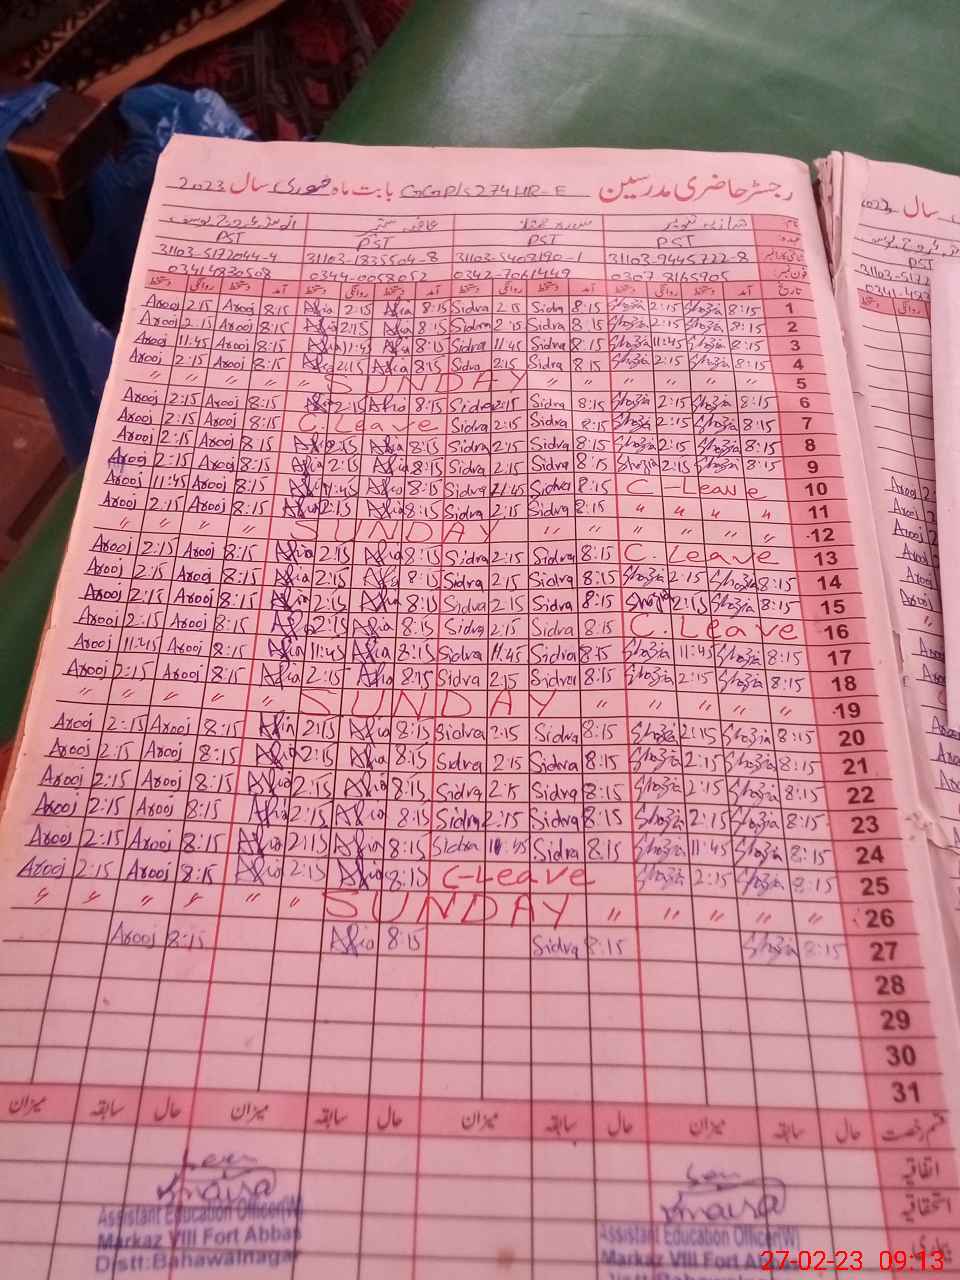 رجسٹر حاضری مدرسین GGCPS 274 HR-E بابت ماہ فروری سال 2023
PST PST PST PST
31103-9445722-8 31103-5408190-1 31103-1835504-8 31103-5172044-4
0307-8165905 0342-7061449 0344-0058052
تاریخ آمد دستخط روانگی دستخط آمد دستخط روانگی دستخط آمد دستخط روانگی دستخط آمد دستخط روانگی دستخط
Arooj 2:15 Arooj 8:15 Afia 2:15 Afia 8:15 Sidra 2:15 Sidra 8:15 Shazia 2:15 Shazia 8:15 1
Arooj 2:15 Arooj 8:15 Afia 2:15 Afia 8:15 Sidra 2:15 Sidra 8:15 Shazia 2:15 Shazia 8:15 2
Arooj 11:45 Arooj 8:15 Afia 11:45 Afia 8:15 Sidra 11:45 Sidra 8:15 Shazia 11:45 Shazia 8:15 3
Arooj 2:15 Arooj 8:15 Afia 2:15 Afia 8:15 Sidra 2:15 Sidra 8:15 Shazia 2:15 Shazia 8:15 4
" " " " " SUNDAY " " " " " " 5
Arooj 2:15 Arooj 8:15 Afia 2:15 Afia 8:15 Sidra 2:15 Sidra 8:15 Shazia 2:15 Shazia 8:15 6
Arooj 2:15 Arooj 8:15 C. Leave Sidra 2:15 Sidra 8:15 Shazia 2:15 Shazia 8:15 7
Arooj 2:15 Arooj 8:15 Afia 2:15 Afia 8:15 Sidra 2:15 Sidra 8:15 Shazia 2:15 Shazia 8:15 8
Arooj 2:15 Arooj 8:15 Afia 2:15 Afia 8:15 Sidra 2:15 Sidra 8:15 Shazia 2:15 Shazia 8:15 9
Arooj 11:45 Arooj 8:15 Afia 11:45 Afia 8:15 Sidra 11:45 Sidra 8:15 C-Leave 10
Arooj 2:15 Arooj 8:15 Afia 2:15 Afia 8:15 Sidra 2:15 Sidra 8:15 " " " " 11
" " " " SUNDAY " " " " " " 12
Arooj 2:15 Arooj 8:15 Afia 2:15 Afia 8:15 Sidra 2:15 Sidra 8:15 C. Leave 13
Arooj 2:15 Arooj 8:15 Afia 2:15 Afia 8:15 Sidra 2:15 Sidra 8:15 Shazia 2:15 Shazia 8:15 14
Arooj 2:15 Arooj 8:15 Afia 2:15 Afia 8:15 Sidra 2:15 Sidra 8:15 Shazia 2:15 Shazia 8:15 15
Arooj 2:15 Arooj 8:15 Afia 2:15 Afia 8:15 Sidra 2:15 Sidra 8:15 C. Leave 16
Arooj 11:45 Arooj 8:15 Afia 11:45 Afia 8:15 Sidra 11:45 Sidra 8:15 Shazia 11:45 Shazia 8:15 17
Arooj 2:15 Arooj 8:15 Afia 2:15 Afia 8:15 Sidra 2:15 Sidra 8:15 Shazia 2:15 Shazia 8:15 18
" " " " " SUNDAY " " " " " " 19
Arooj 2:15 Arooj 8:15 Afia 2:15 Afia 8:15 Sidra 2:15 Sidra 8:15 Shazia 2:15 Shazia 8:15 20
Arooj 2:15 Arooj 8:15 Afia 2:15 Afia 8:15 Sidra 2:15 Sidra 8:15 Shazia 2:15 Shazia 8:15 21
Arooj 2:15 Arooj 8:15 Afia 2:15 Afia 8:15 Sidra 2:15 Sidra 8:15 Shazia 2:15 Shazia 8:15 22
Arooj 2:15 Arooj 8:15 Afia 2:15 Afia 8:15 Sidra 2:15 Sidra 8:15 Shazia 2:15 Shazia 8:15 23
Arooj 2:15 Arooj 8:15 Afia 2:15 Afia 8:15 Sidra 11:45 Sidra 8:15 Shazia 11:45 Shazia 8:15 24
Arooj 2:15 Arooj 8:15 Afia 2:15 Afia 8:15 C-Leave Shazia 2:15 Shazia 8:15 25
" " " " " " SUNDAY " " " " " 26
Arooj 8:15 Afia 8:15 Sidra 8:15 Shazia 8:15 27
28
29
30
31
قسم رخصت حال سابقہ میزان حال سابقہ میزان حال سابقہ میزان حال سابقہ میزان
اتفاقیہ
استحقاقیہ
بیماری
Seen
Assistant Education Officer(W)
Markaz VIII Fort Abbas
Distt: Bahawalnagar
Seen
Assistant Education Officer(W)
Markaz VIII Fort Abbas
Distt: Bahawalnagar
27-02-23 09:13